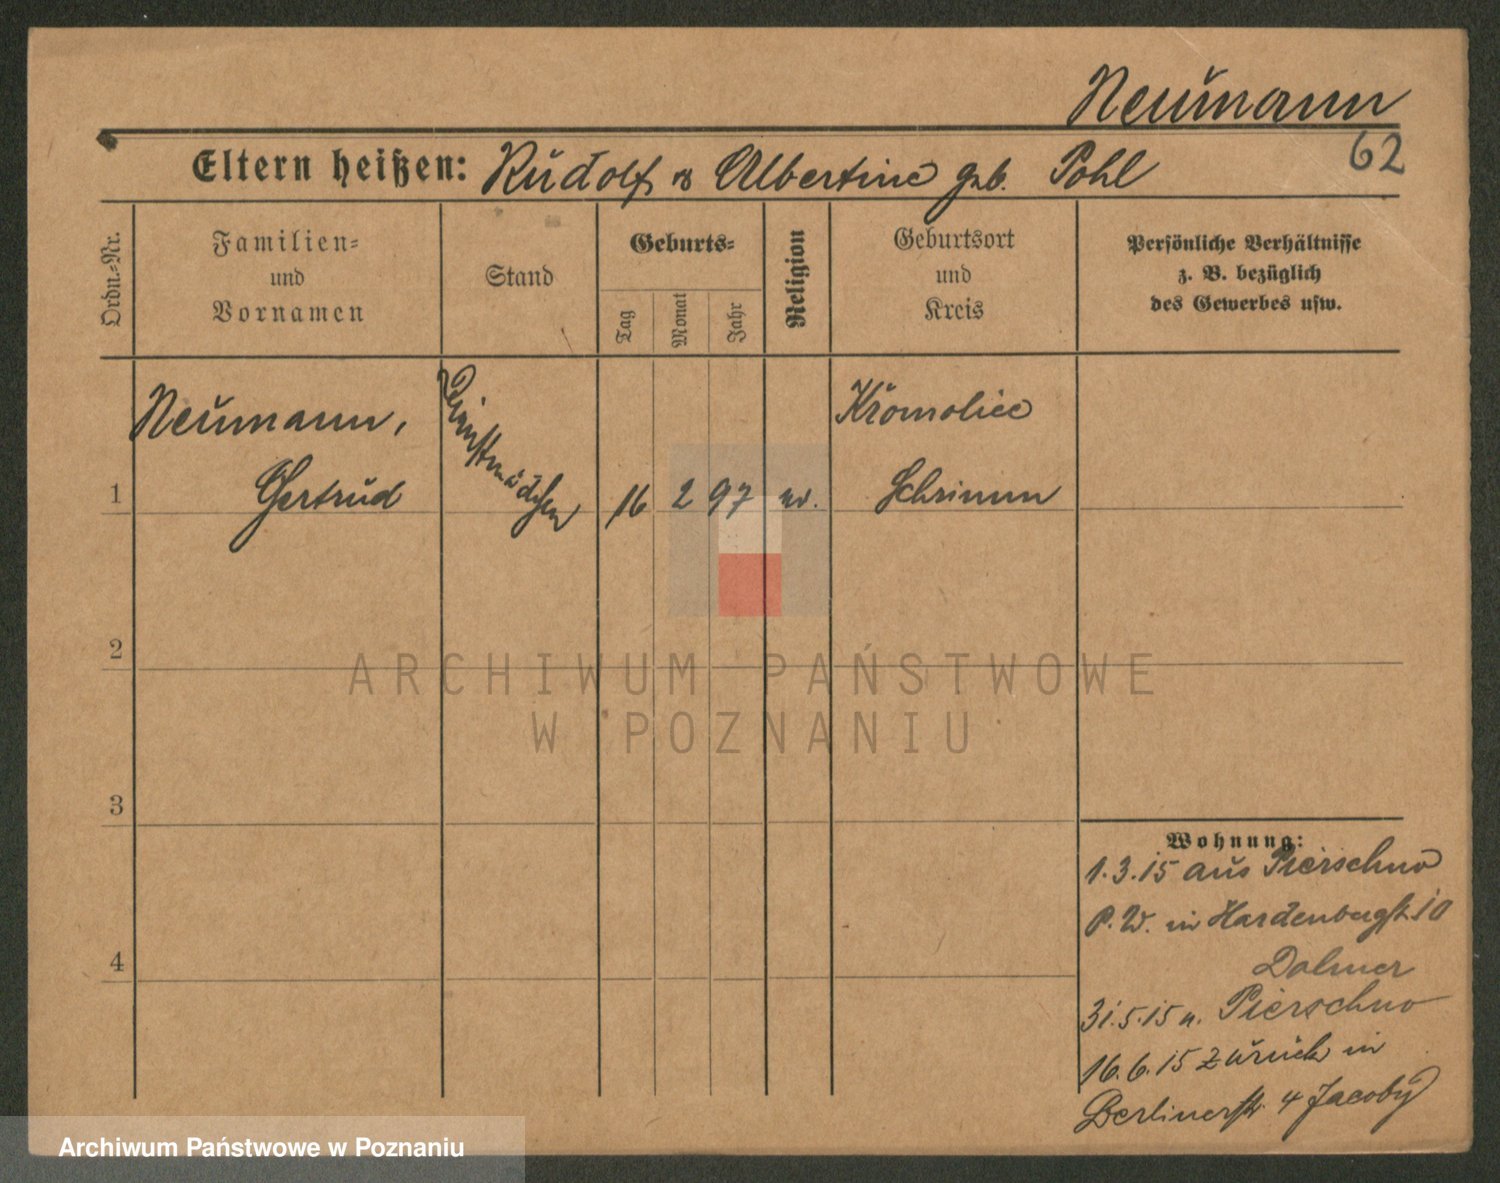 Neumann
62
Eltern heißen: Rudolf u Albertine geb. Pohl
Ordn.=Nr.
Familien=
und
Vornamen
Stand
Geburts=
Tag
Monat
Jahr
Religion
Geburtsort
und
Kreis
Persönliche Verhältnisse
z. B. bezüglich
des Gewerbes usw.
1
Neumann,
Gertrud
Dienstmädchen
16
2
97
ev.
Kromolice
Schrimm
2
3
4
ARCHIWUM PAŃSTWOWE
W POZNANIU
Wohnung:
1.3.15 aus Pierschno
P.W. in Hardenbergstr. 10
31.5.15 n. Pierschno
16.6.15 zurück in
Berlinerstr. 4 Jacoby
Archiwum Państwowe w Poznaniu